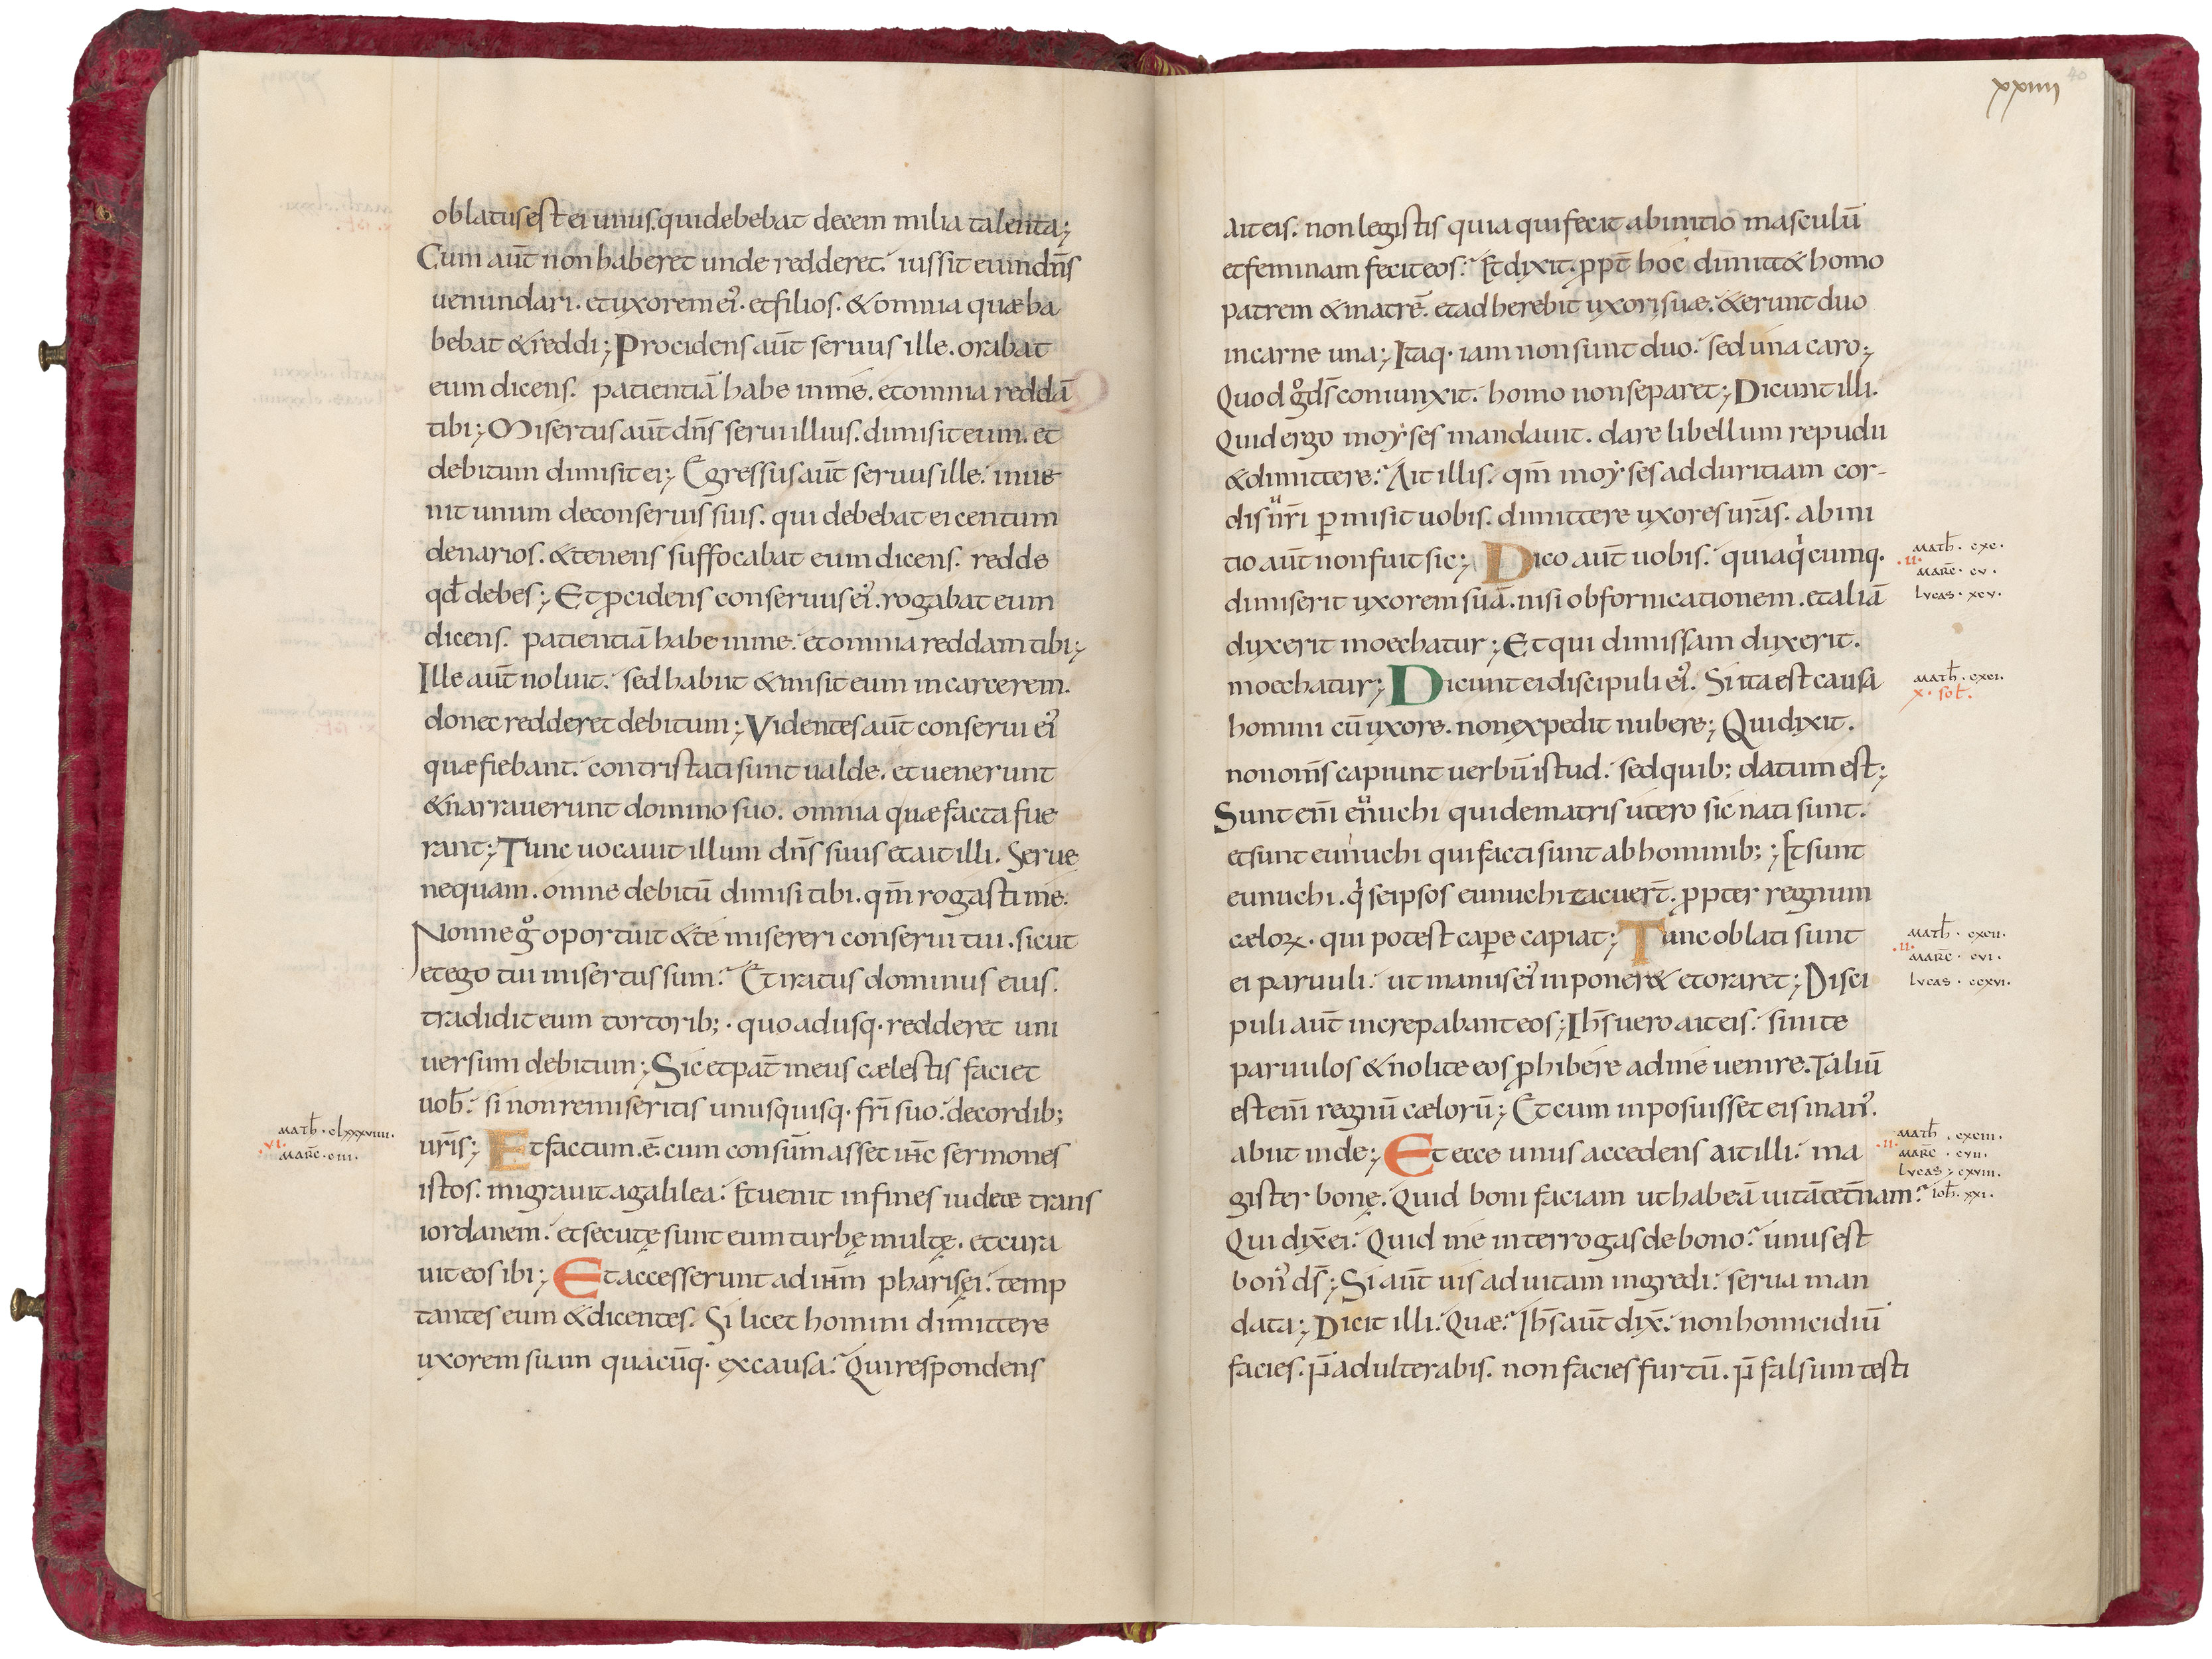 oblatus est ei unus. qui debebat decem milia talenta;
Cum aut̄ non haberet unde redderet. iussit eum dn̄s
uenundari. et uxorem ei᾽. et filios. & omnia quæ ha
bebat & reddi; Procidens aut̄ seruus ille. orabat
eum dicens. patientiā habe in me. et omnia reddā
tibi; Misertus aut̄ dn̄s serui illius. dimisit eum. et
debitum dimisit ei; Egressus aut̄ seruus ille. inue
nit unum de conseruis suis. qui debebat ei centum
denarios. & tenens suffocabat eum dicens. redde
qđ debes; Et ꝓcidens conseruus ei᾽. rogabat eum
dicens. patientiā habe in me. et omnia reddam tibi;
Ille aut̄ noluit. sed habiit & misit eum in carcerem.
donec redderet debitum; Videntes aut̄ conserui ei᾽
quæ fiebant. contristati sunt ualde. et uenerunt
& narrauerunt domino suo. omnia quæ facta fue
rant; Tunc uocauit illum dn̄s suus et ait illi. Serue
nequam. omne debitū dimisi tibi. qm̄ rogasti me.
Nonne gͦ oportuit & te misereri conserui tui. sicut
et ego tui misertus sum? Et iratus dominus eius.
tradidit eum tortorib;. quo adusq· redderet uni
uersum debitum; Sic et pat̄ meus cælestis faciet
uob̄. si non remiseritis unusquisq· fr̄i suo. de cordib;
ur̄is; Et factum .ē. cum consūmasset ih̄c sermones
math̄· clxxxviiii.
vi.
marc̄· ciii.
istos. migrauit a galilea. Et uenit in fines iudeæ trans
iordanem. et secutę sunt eum turbę multę. et cura
uit eos ibi; Et accesserunt ad ih̄m pharisęi. temp
tantes eum & dicentes. Si licet homini dimittere
uxorem suam quacūq· ex causa? Qui respondens
xxiiii 40
ait eis. non legistis quia qui fecit ab initio masculū
et feminam fecit eos? Et dixit. ꝓpt̄ hoc dimitt& homo
patrem & matrē. et adherebit uxori suæ. & erunt duo
in carne una; Itaq· iam non sunt duo. sed una caro;
Quod gͦ ds̄ coniunxit. homo non separet; Dicunt illi.
Quid ergo moyses mandauit. dare libellum repudii
& dimittere? Ait illis. qm̄ moyses ad duritiam cor-
dis ur̄i ꝑmisit uobis. dimittere uxores urās. ab ini
tio aut̄ non fuit sic; Dico aut̄ uobis. quia qͥcumq·
math̄· cxc.
.ii.
marc̄· cv.
lvcas· xcv.
dimiserit uxorem suā. nisi ob fornicationem. et aliā
duxerit moechatur; Et qui dimissam duxerit.
moechatur; Dicunt ei discipuli ei᾽. Si ita est causa
math̄· cxci.
x· sol̄.
homini cū uxore. non expedit nubere; Qui dixit.
non om̄s capiunt uerbū istud. sed quib; datum est;
Sunt em̄ eunuchi qui de matris utero sic nati sunt.
et sunt eunuchi qui facti sunt ab hominib;; Et sunt
eunuchi. qͥ seipsos eunuchizauer̄. ꝓpter regnum
cæloꝝ. qui potest caꝑe capiat; Tunc oblati sunt
math̄· cxcii.
.ii.
marc̄· cvi.
ei paruuli. ut manus ei᾽ inponer& et oraret; Disci
lvcas· ccxvi.
puli aut̄ increpabant eos; Ih̄s uero ait eis. sinite
paruulos & nolite eos ꝓhibere ad me uenire. Taliū
est em̄ regnū cælorū; Et cum inposuisset eis man᾽.
abiit inde; Et ecce unus accedens ait illi. ma
math̄· cxciii.
.ii.
marc̄· cvii.
lvcas· cxviii.
gister bonę. Quid boni faciam ut habeā uitā æt̄nam?
ioh̄· xxi.
Qui dix̄ ei. Quid me interrogas de bono? unus est
bon᾽ ds̄; Si aut̄ uis ad uitam ingredi. serua man
data; Dicit illi. Quæ? Ih̄s aut̄ dix̄. non homicidiū
facies. ꞃ̄ adulterabis. non facies furtū. ꞃ̄ falsum testi